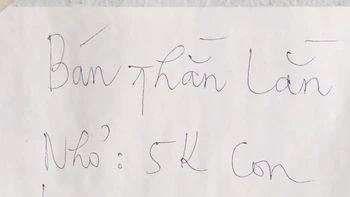 Bán thằn lằn
Nhỏ: 5K con